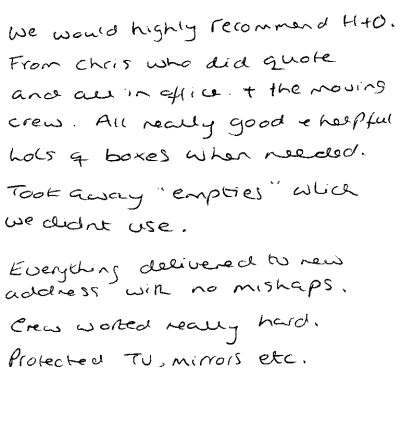 We would highly recommend H+O.
From Chris who did quote
and all in office. + the moving
crew. All really good + helpful
lots of boxes when needed.
Took away "empties" which
we didnt use.
Everything delivered to new
address with no mishaps.
Crew worked really hard.
Protected TV, mirrors etc.